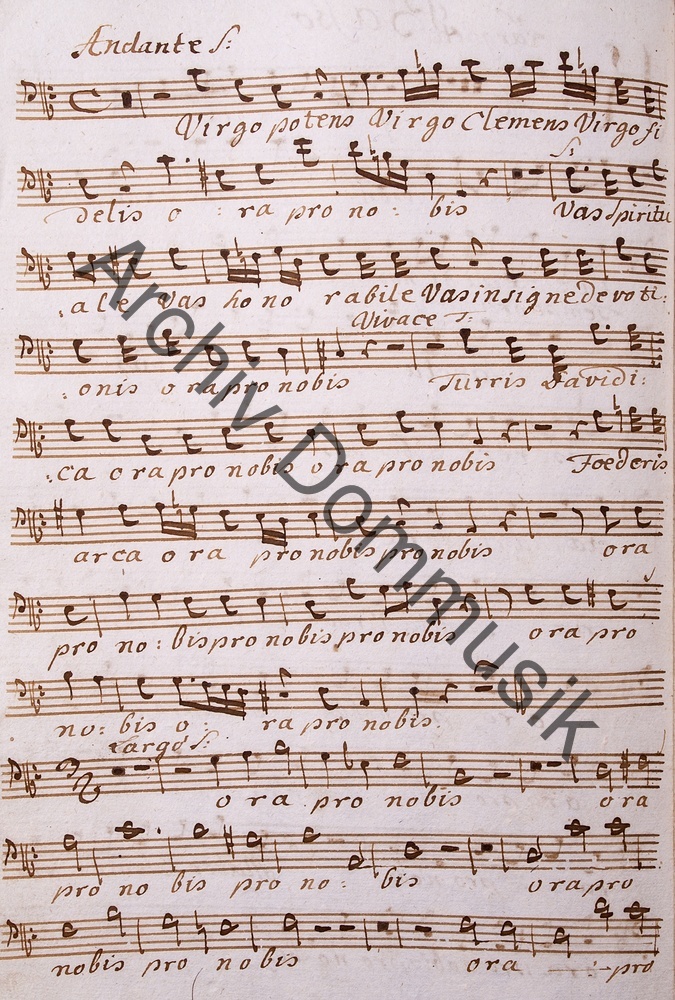 Andante S:
Virgo potens Virgo Clemens Virgo fi
delis o : ra pro no : bis Vas Spiritu
S:
: ale Vas ho no rabile Vas insigne devoti:
Vivace T:
: onis o ra pro nobis Turris Davidi:
: ca o ra pro nobis o ra pro nobis Foederis
arca o ra pro nobis pro nobis ora
pro no : bis pro nobis pro nobis ora pro
no : bis o : ra pro nobis
Largo S:
o ra pro nobis ora
pro no bis pro no : bis ora pro
nobis pro nobis ora : pro
Archiv Dommusik